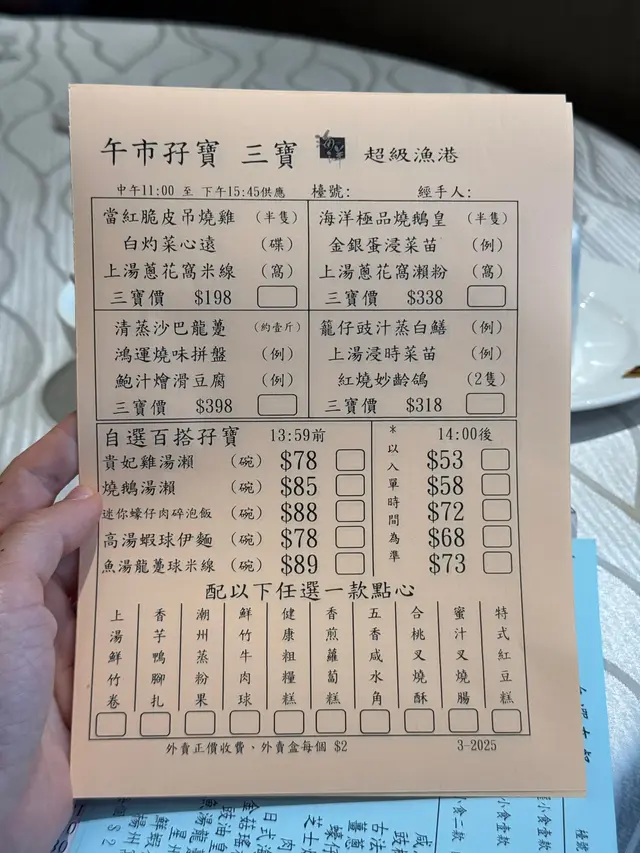 午市孖寶 三寶 超級漁港
中午11:00 至 下午15:45供應 檯號: 經手人:
當紅脆皮吊燒雞 (半隻)
白灼菜心遠 (碟)
上湯蔥花窩米線 (窩)
三寶價 $198
海洋極品燒鵝皇 (半隻)
金銀蛋浸菜苗 (例)
上湯蔥花窩瀨粉 (窩)
三寶價 $338
清蒸沙巴龍躉 (約壹斤)
鴻運燒味拼盤 (例)
鮑汁燴滑豆腐 (例)
三寶價 $398
籠仔豉汁蒸白鱔 (例)
上湯浸時菜苗 (例)
紅燒妙齡鴿 (2隻)
三寶價 $318
自選百搭孖寶 13:59前 14:00後
貴妃雞湯瀨 (碗) $78 $53
燒鵝湯瀨 (碗) $85 $58
迷你蠔仔肉碎泡飯 (碗) $88 $72
高湯蝦球伊麵 (碗) $78 $68
魚湯龍躉球米線 (碗) $89 $73
*以入單時間為準
配以下任選一款點心
上湯鮮竹卷
香芋鴨腳扎
潮州蒸粉果
鮮竹牛肉球
健康粗糧糕
香煎蘿蔔糕
五香咸水角
合桃叉燒酥
蜜汁叉燒腸
特式紅豆糕
外賣正價收費、外賣盒每個 $2 3-2025